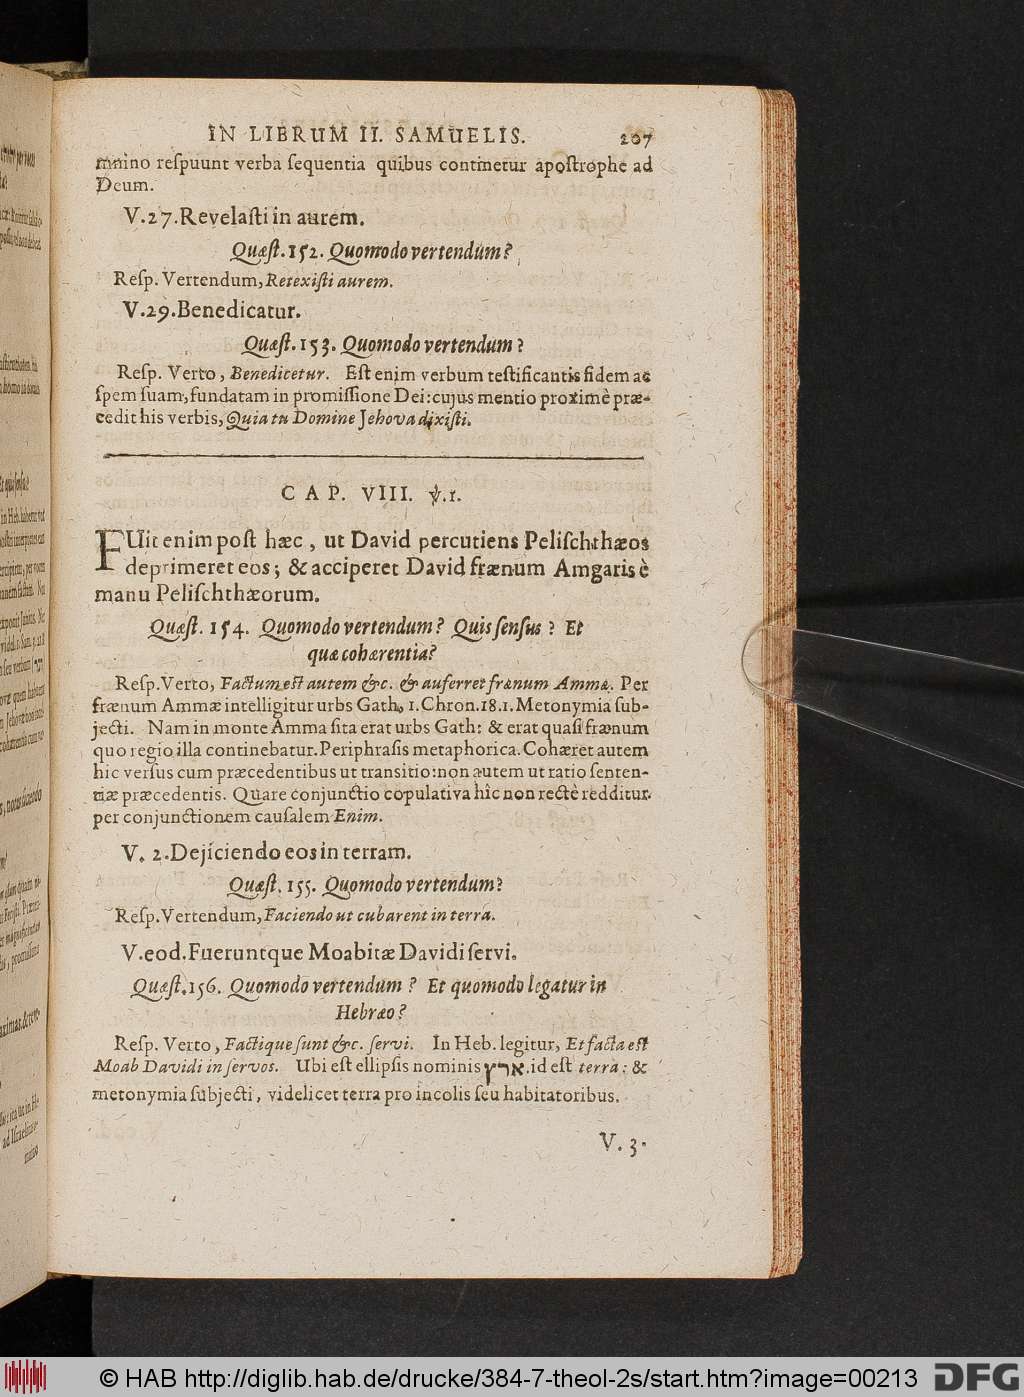 IN LIBRUM II. SAMUELIS. 207
mnino reſpuunt verba ſequentia quibus continetur apoſtrophe ad
Deum.
V.27.Revelaſti in aurem.
Quæſt.152. Quomodo vertendum?
Reſp. Vertendum, Retexiſti aurem.
V.29.Benedicatur.
Quæſt.153. Quomodo vertendum?
Reſp. Verto, Benedicetur. Eſt enim verbum teſtificantis fidem ac
ſpem ſuam, fundatam in promiſſione Dei: cujus mentio proximè præ-
cedit his verbis, Quia tu Domine Jehova dixiſti.
CAP. VIII. ℣.1.
FUit enim poſt hæc, ut David percutiens Peliſchthæos
deprimeret eos; & acciperet David frænum Amgaris è
manu Peliſchthæorum.
Quæſt. 154. Quomodo vertendum? Quis ſenſus? Et
quæ cohærentia?
Reſp. Verto, Factum est autem &c. & auferret frænum Ammæ. Per
frænum Ammæ intelligitur urbs Gath, 1.Chron.18.1. Metonymia ſub-
jecti. Nam in monte Amma ſita erat urbs Gath: & erat quaſi frænum
quo regio illa continebatur. Periphraſis metaphorica. Cohæret autem
hic verſus cum præcedentibus ut transitio: non autem ut ratio ſenten-
tiæ præcedentis. Quare conjunctio copulativa hîc non rectè redditur
per conjunctionem cauſalem Enim.
V. 2.Dejiciendo eos in terram.
Quæſt. 155. Quomodo vertendum?
Reſp. Vertendum, Faciendo ut cubarent in terra.
V.eod.Fueruntque Moabitæ Davidi ſervi.
Quæſt.156. Quomodo vertendum? Et quomodo legatur in
Hebræo?
Reſp. Verto, Factique ſunt &c. ſervi. In Heb. legitur, Et facta eſt
Moab Davidi in ſervos. Ubi eſt ellipſis nominis ארץ. id est terra: &
metonymia ſubjecti, videlicet terra pro incolis ſeu habitatoribus.
V. 3.
© HAB http://diglib.hab.de/drucke/384-7-theol-2s/start.htm?image=00213
DFG